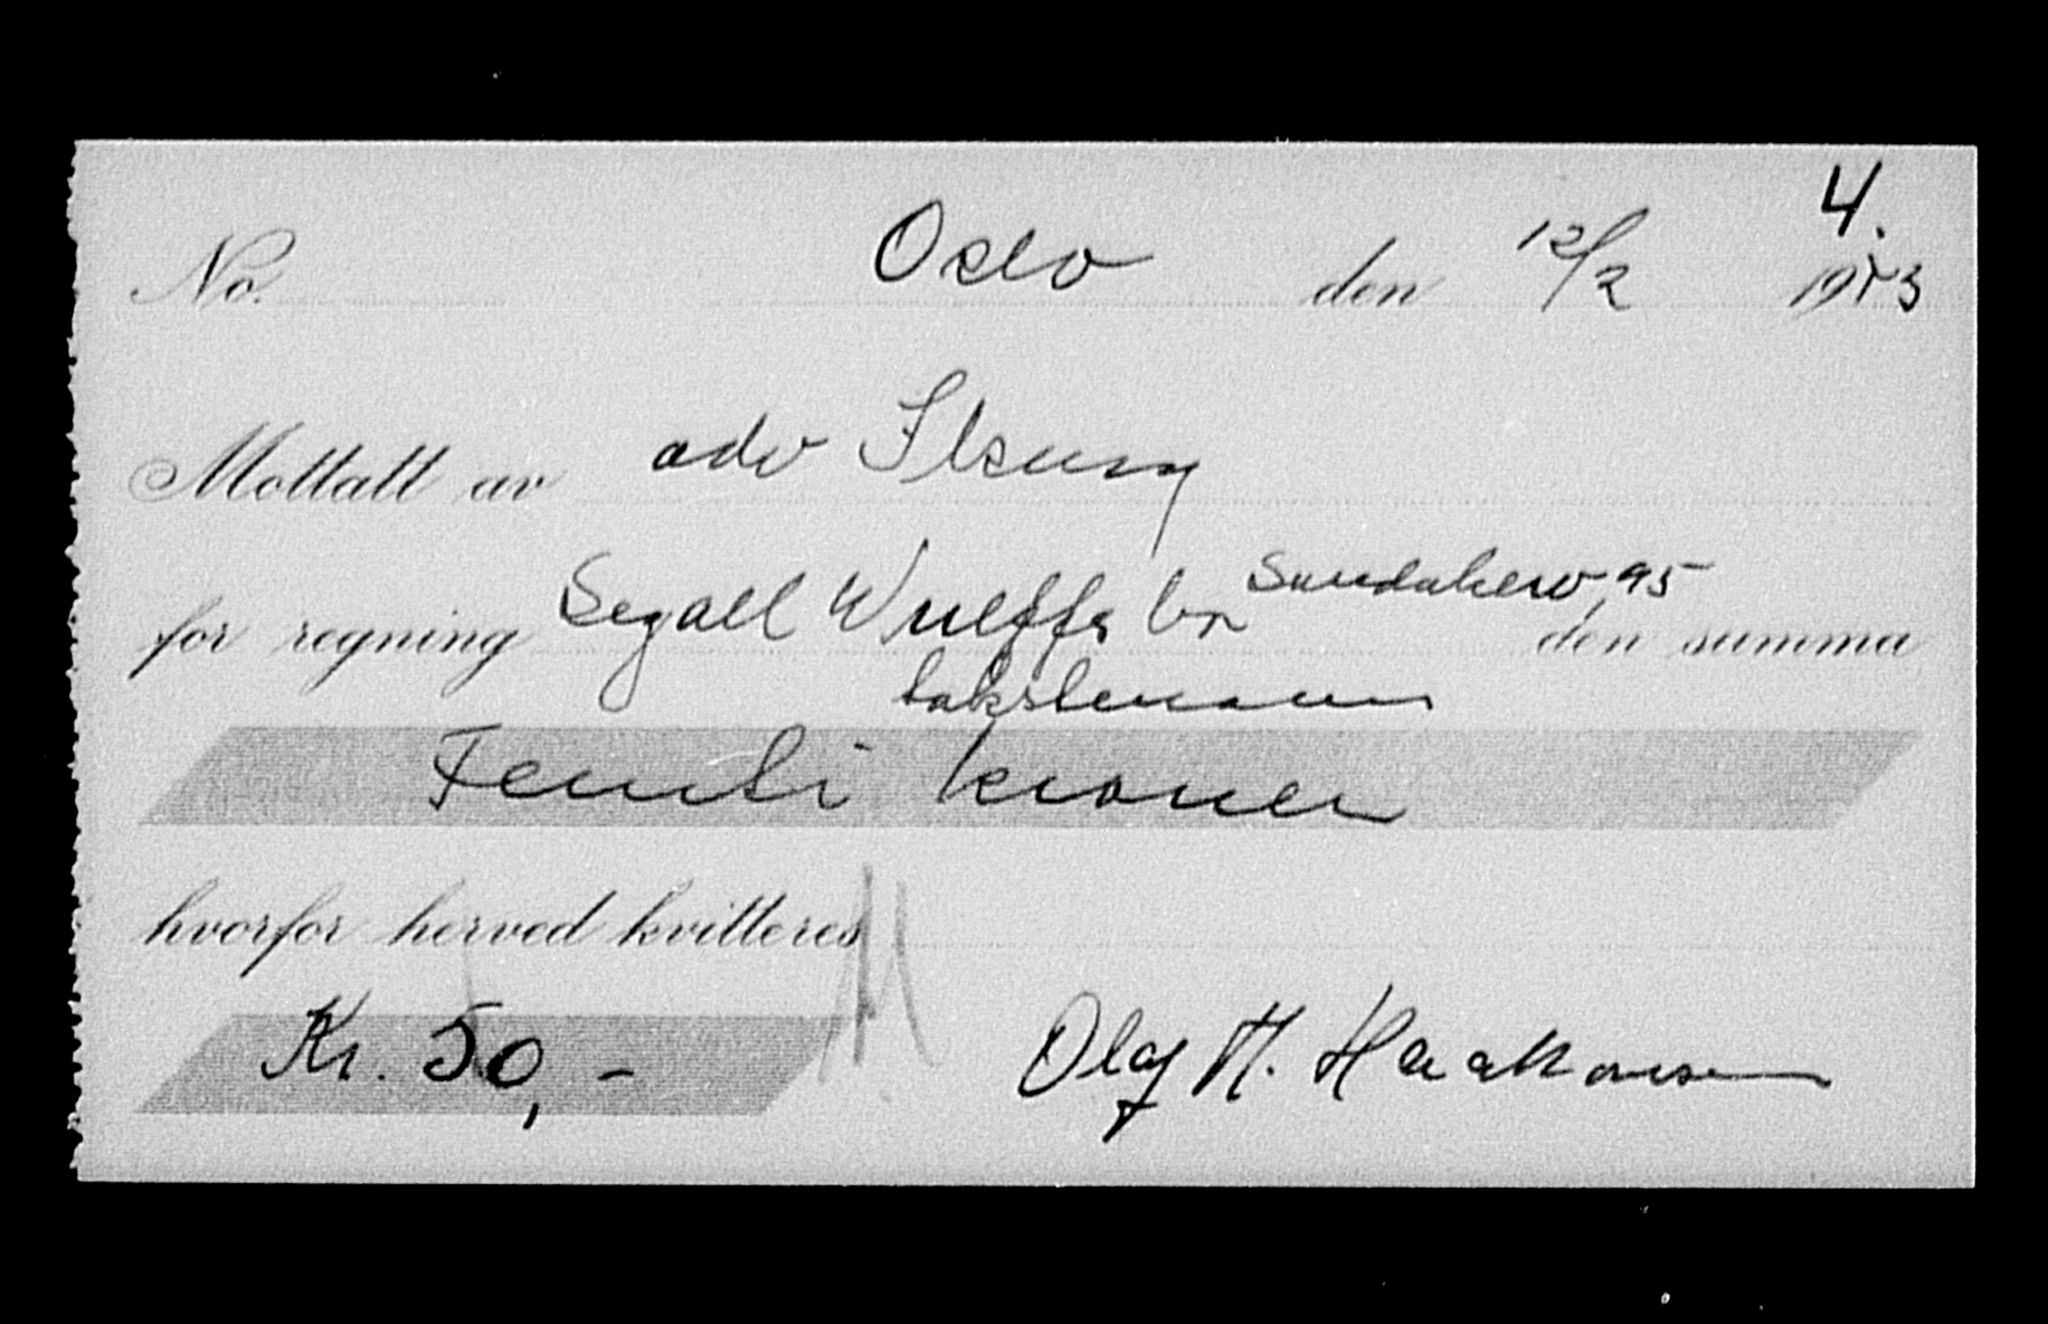 4.
No. Oslo den 12/2 1943
Mottatt av adv
for regning Segall Wulffs Sandakerv 95 den summa
takstmann
Femti kroner
hvorfor herved kvitteres
Kr. 50,- Olaf H. Haakonsen